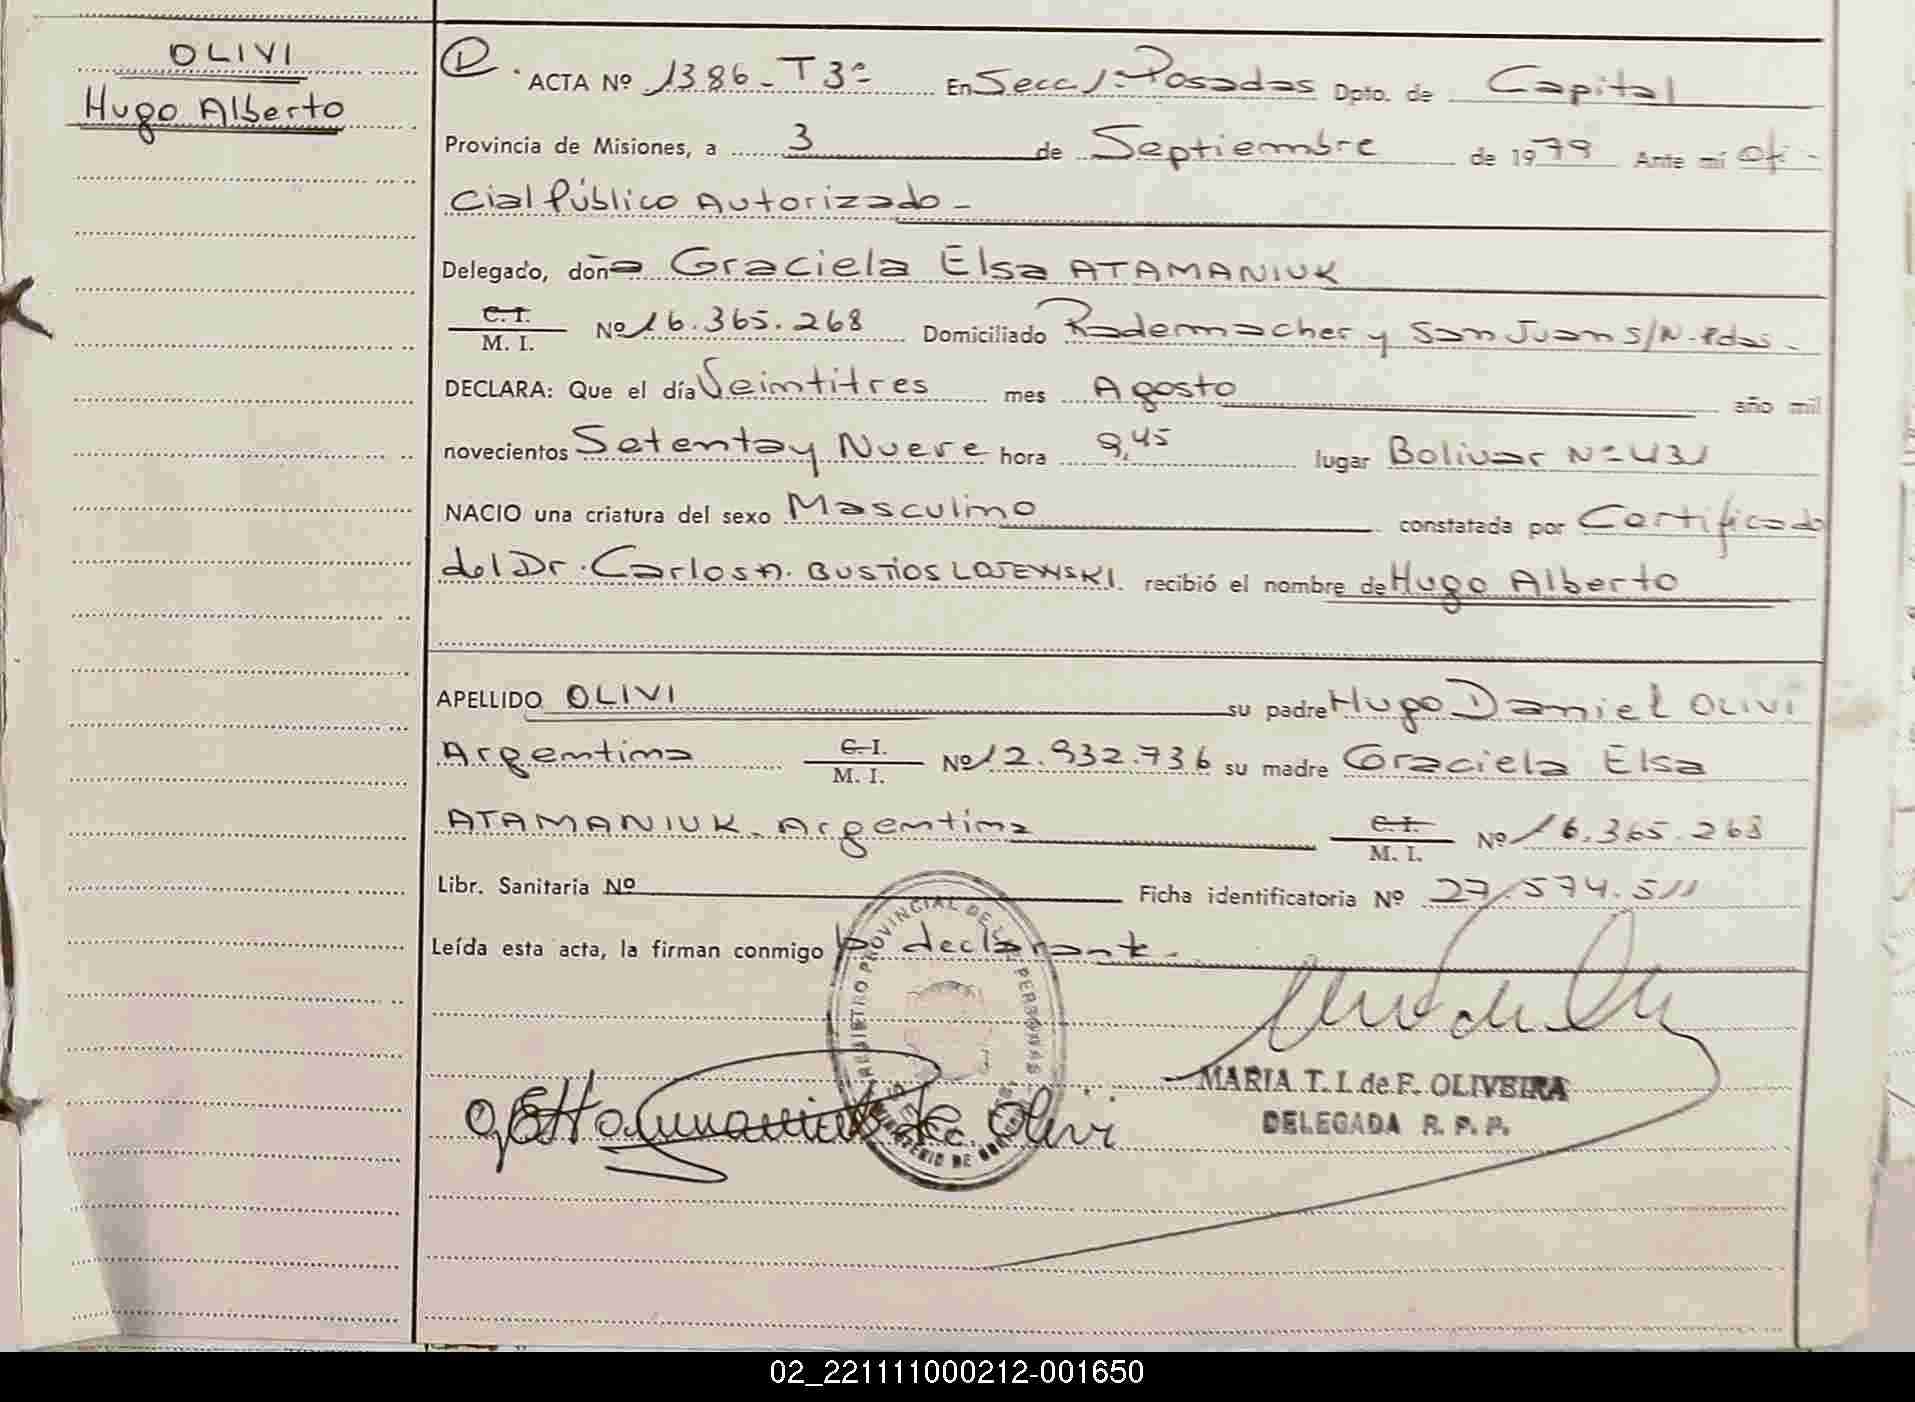 OLIVI
Hugo Alberto
D. ACTA Nº 1386 - T 3º - En Secc 1º Posadas Dpto. de Capital
Provincia de Misiones, a 3 de Septiembre de 1979 Ante mí Ofi-
cial Público Autorizado -
Delegado, doña Graciela Elsa ATAMANIUK
C. I.
M. I. Nº 16.365.268 Domiciliado Rademacher y San Juan S/N - Pdas. -
DECLARA: Que el día Veintitres mes Agosto año mil
novecientos Setenta y Nueve hora 9,45 lugar Bolivar Nº 431
NACIO una criatura del sexo Masculino constatada por Certificado
del Dr. Carlos A. BUSTIOS LOJEWSKI. recibió el nombre de Hugo Alberto
APELLIDO OLIVI su padre Hugo Daniel OLIVI
Argentina C. I. M. I. Nº 12.932.736 su madre Graciela Elsa
ATAMANIUK. Argentina C. I. M. I. Nº 16.365.268
Libr. Sanitaria Nº Ficha identificatoria Nº 27.574.511
Leída esta acta, la firman conmigo la declarante.
REGISTRO PROVINCIAL DE LAS PERSONAS
MINISTERIO DE
de Olivi
MARIA T. I. de F. OLIVEIRA
DELEGADA R. P. P.
02_221111000212-001650